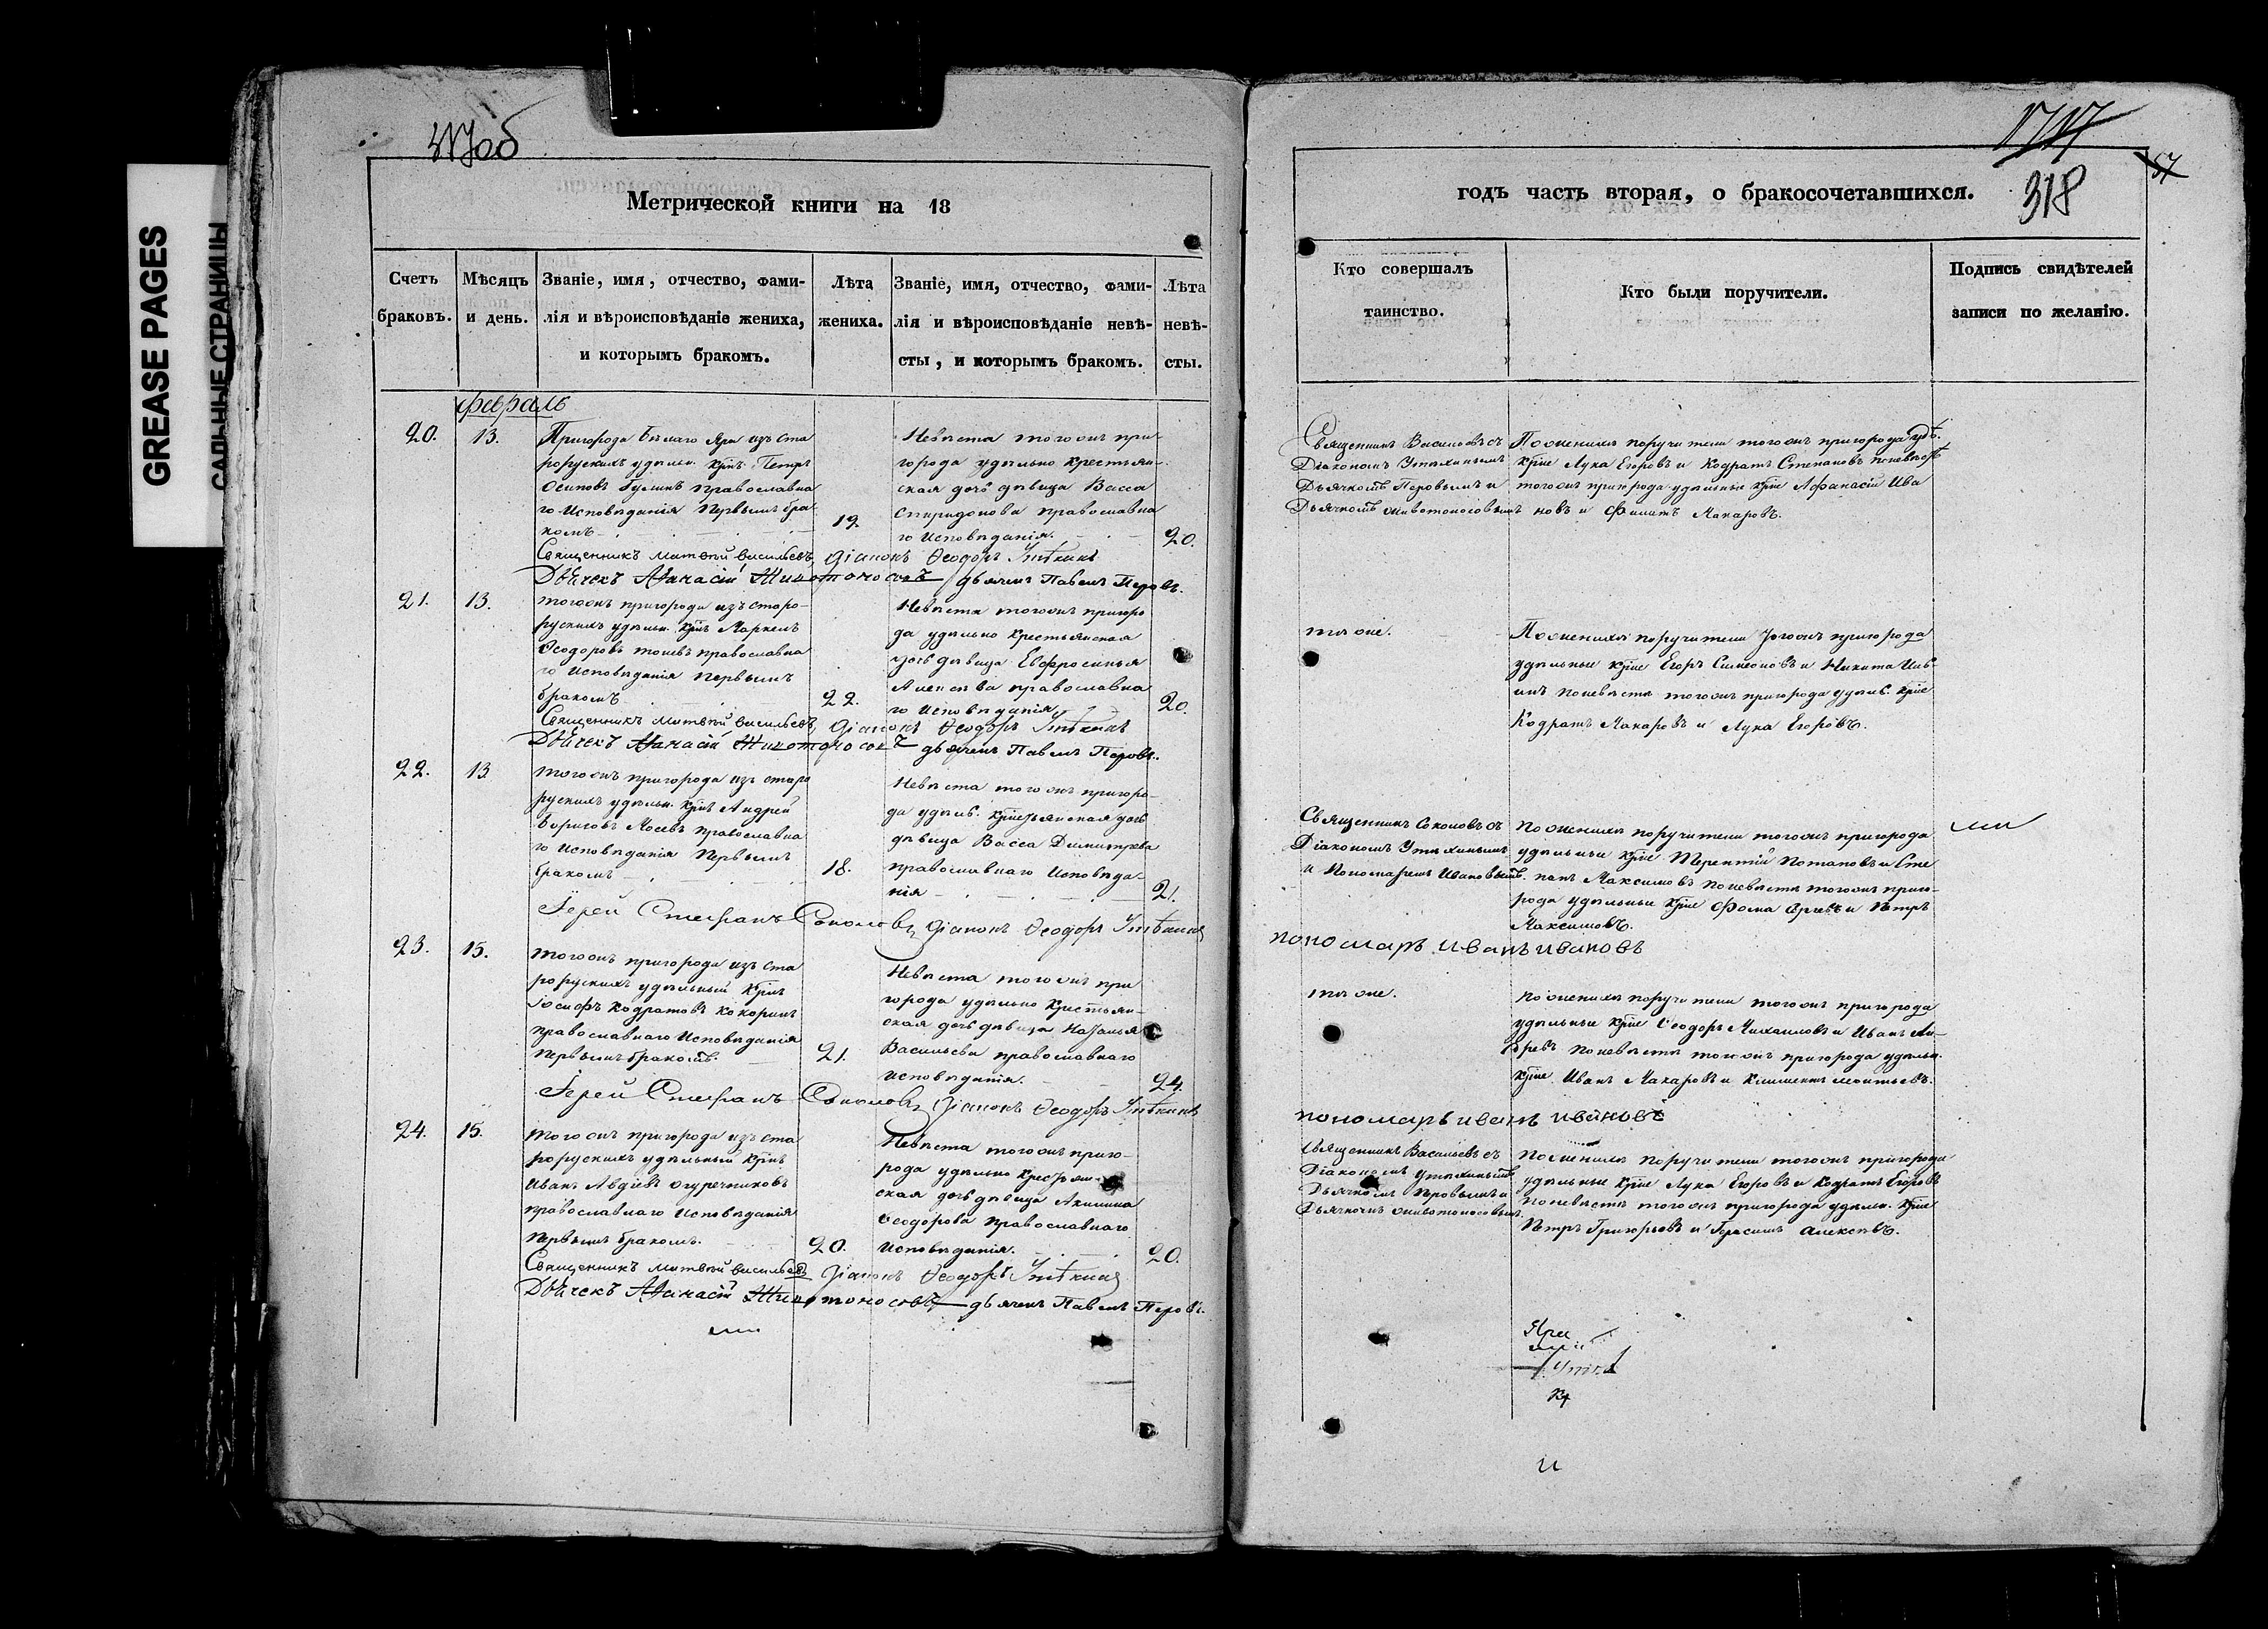 GREASE PAGES
САЛЬНЫЕ СТРАНИЦЫ
Метрической книги на 18
Счетъ браковъ.
Мѣсяцъ и день.
Званіе, имя, отчество, фами-
лія и вѣроисповѣданіе жениха,
и которымъ бракомъ.
Лѣта жениха.
Званіе, имя, отчество, фами-
лія и вѣроисповѣданіе невѣ-
сты, и которымъ бракомъ.
Лѣта невѣ-
сты.
февраль
20.
13.
Пригорода Бѣлаго Яра изъ ста
рорускихъ удѣльн. крнъ Петръ
Осиповъ православна
го Исповѣданія первымъ бра
комъ
19
Невѣста тогожъ при-
города удѣльно крестьян-
ская дочь дѣвица Васса
Спиридонова православна
го Исповѣданія.
20.
Священникъ Матвѣй Васильевъ, Діаконъ Ѳеодоръ Утѣхинъ
Дьячекъ Аѳанасій Животоносовъ дьячекъ Павелъ Перовъ.
21.
13.
тогожъ пригорода изъ старо-
рускихъ удѣльн. крнъ Маркелъ
Ѳеодоровъ православна
го Исповѣданія первымъ
бракомъ
22.
Невѣста тогожъ пригоро
да удѣльно крестьянская
дочь дѣвица Евфросинья
православна
го Исповѣданія
20.
Священникъ Матвѣй Васильевъ, Діаконъ Ѳеодоръ Утѣхинъ
Дьячекъ Аѳанасій Животоносовъ дьячекъ Павелъ Перовъ.
22.
13
тогожъ пригорода изъ старо
рускихъ удѣльн. крнъ Андрей
Борисовъ православна
го Исповѣданія первымъ
бракомъ
18.
Невѣста тогожъ пригоро-
да удѣльн. дочь
дѣвица Васса Димитрева
православнаго Исповѣда-
нія
21.
Іерей Стефанъ Соколовъ, Діаконъ Ѳеодоръ Утѣхинъ
23.
15.
тогожъ пригорода изъ ста
рорускихъ удѣльный крнъ
Іосифъ Кодратовъ Кокоринъ
православнаго Исповѣданія
первымъ бракомъ.
21.
Невѣста тогожъ при
города удѣльно крестьян-
ская дочь дѣвица Наталья
Васильева православнаго
Исповѣданія.
24.
Іерей Стефанъ Соколовъ, Діаконъ Ѳеодоръ Утѣхинъ
24.
15.
тогожъ пригорода изъ ста
рорускихъ удѣльный крнъ
Иванъ Авдіевъ Огуречниковъ
православнаго Исповѣданія
первымъ бракомъ.
20.
Невѣста тогожъ приго-
рода удѣльно крестьян-
ская дочь дѣвица Акилина
Ѳеодорова православнаго
Исповѣданія.
20.
Священникъ Матвѣй Васильевъ Діаконъ Ѳеодоръ Утѣхинъ
Дьячекъ Аѳанасій Животоносовъ дьячекъ Павелъ Перовъ.
318
годъ часть вторая, о бракосочетавшихся.
Кто совершалъ
таинство.
Кто были поручители.
Подпись свидѣтелей
записи по желанію.
Священникъ Васильевъ съ
Діакономъ Утѣхинымъ
Дьячкомъ Перовымъ и
Дьячкомъ Животоносовымъ
По женихѣ поручители тогожъ пригорода удѣ.
крне Лука Егоровъ и Кодратъ Степановъ по невѣстѣ
тогожъ пригорода удѣльные крне Афанасій Ива
новъ и Филипъ Макаровъ.
тѣ же.
По женихѣ поручители тогожъ пригорода
удѣльные крне Егоръ Симеоновъ и Никита
по невѣстѣ тогожъ пригорода удѣльн. крне
Кодратъ Макаровъ и Лука Егоровъ.
Священникъ Соколовъ съ
Діакономъ Утѣхинымъ
и Пономаремъ Ивановымъ.
По женихѣ поручители тогожъ пригорода
удѣльные крне Терентій Потаповъ и Сте
панъ Максимовъ по невѣстѣ тогожъ приго-
рода удѣльные крне Фома и Петръ
Максимовъ.
пономарь Иванъ Ивановъ
тѣ же.
По женихѣ поручители тогожъ пригорода
удѣльные крне Ѳеодоръ Михаиловъ и Иванъ Ан-
дреевъ по невѣстѣ тогожъ пригорода удѣльн.
крне Иванъ Макаровъ и Климентъ Леонтьевъ.
пономарь Иванъ Ивановъ
Священникъ Васильевъ съ
Діакономъ Утѣхинымъ
Дьячкомъ Перовымъ и
Дьячкомъ Животоносовымъ.
По женихѣ поручители тогожъ пригорода
удѣльные крне Лука Егоровъ и Кодратъ Егоровъ
по невѣстѣ тогожъ пригорода удѣльн. крне
Петръ Григорьевъ и Герасимъ Алексѣевъ.